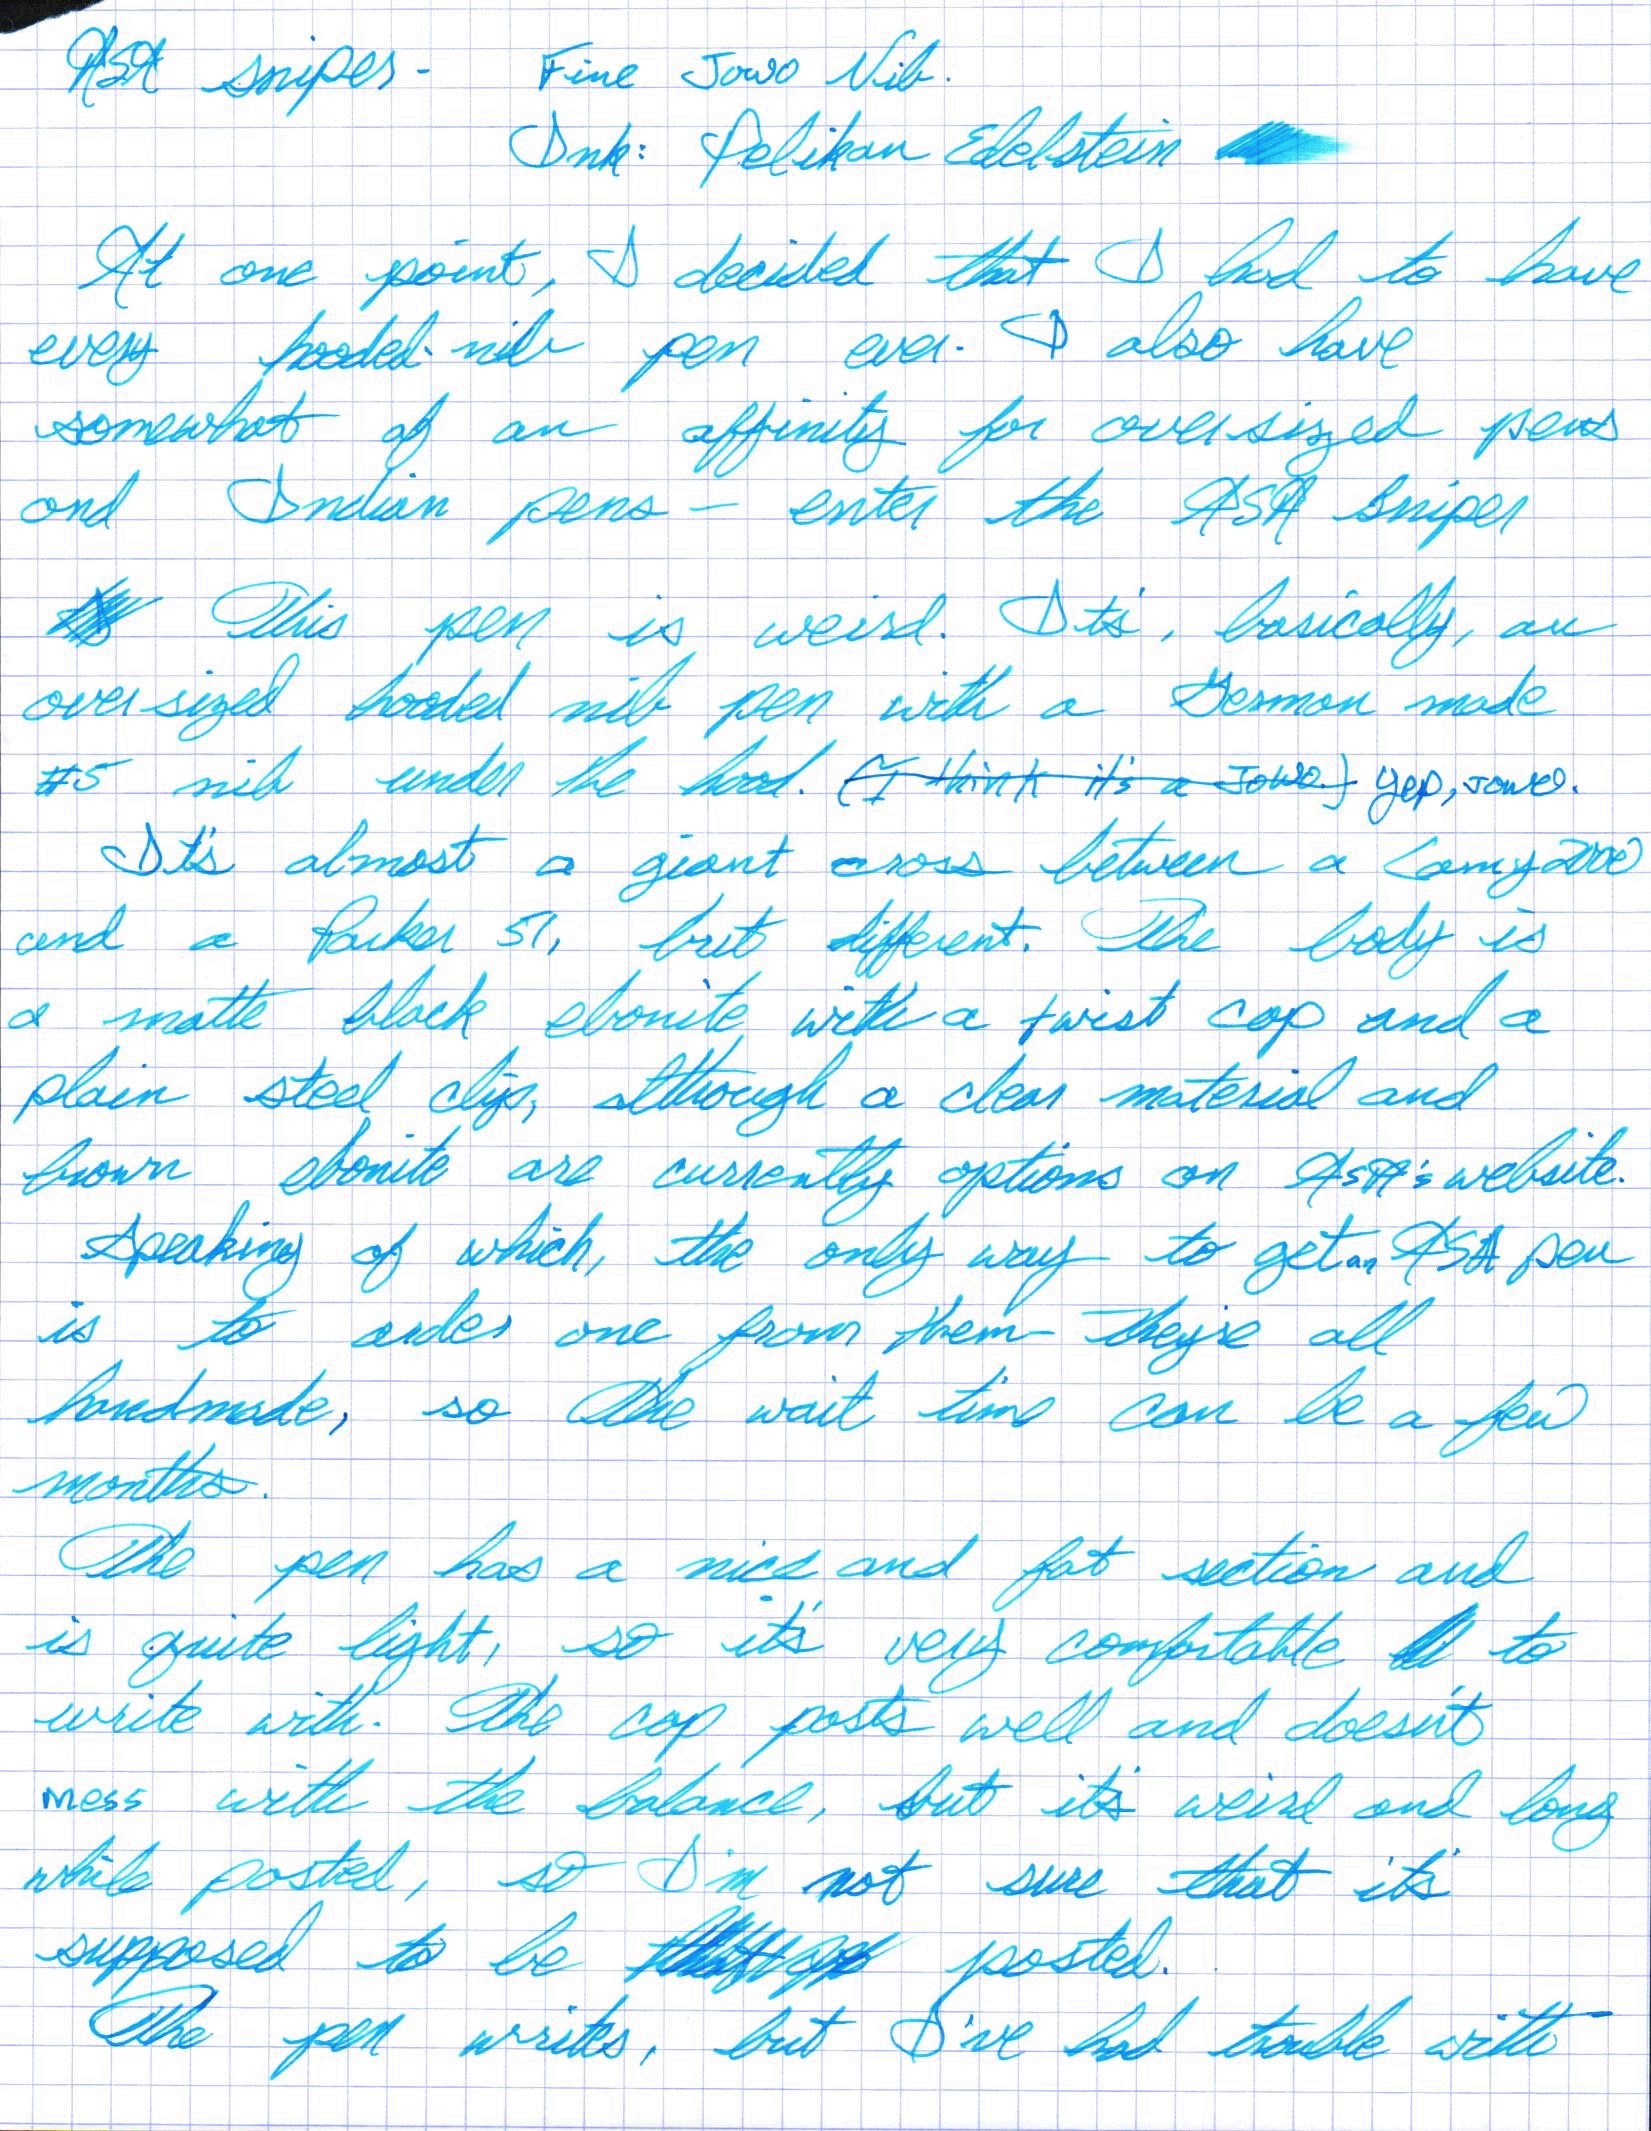 ASA Sniper - Fine Jowo Nib.
Ink: Pelikan Edelstein
At one point, I decided that I had to have
every hooded nib pen ever. I also have
somewhat of an affinity for oversized pens
and Indian pens - enter the ASA Sniper
This pen is weird. It's, basically, an
oversized hooded nib pen with a German made
#5 nib under the hood. (I think it's a Jowo) Yep, Jowo.
It's almost a giant cross between a Lamy 2000
and a Parker 51, but different. The body is
a matte black ebonite with a twist cap and a
plain steel clip, although a clear material and
brown ebonite are currently options on ASA's website.
Speaking of which, the only way to get an ASA pen
is to order one from them - they're all
handmade, so the wait time can be a few
months.
The pen has a nice and fat section and
is quite light, so it's very comfortable to
write with. The cap posts well and doesn't
mess with the balance, but it's weird and long
while posted, so I'm not sure that it's
supposed to be posted.
The pen writes, but I've had trouble with